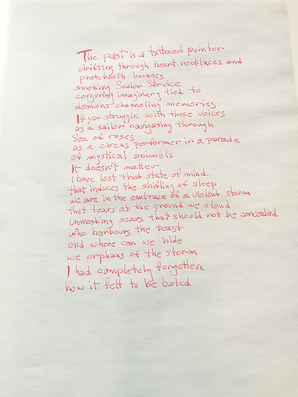 The past is a tattooed painter
drifting through heart necklaces and
photobooth images
smoking Senior Service
conjuring imaginery tied to
demons channeling memories
If you struggle with those voices
as a sailor navigating through
Sea of roses
as a circus performer in a parade
of mystical animals
It doesn't matter
I have lost that state of mind
that induces the shifting of sleep
we are in the embrace of a violent storm
that tears at the ground we stand
Unmasking scars that should not be concealed
who harbours the beast
and where can we hide
we orphans of the storm
I had completely forgotten
how it felt to be hated